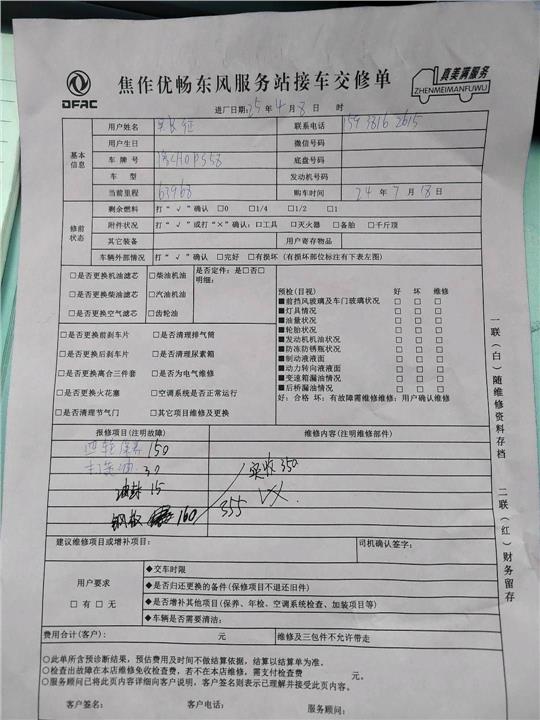 DFAC
焦作优畅东风服务站接车交修单
真美满服务
ZHENMEIMANFUWU
进厂日期:25年4月8日 时
基本信息
用户姓名 联系电话 159 3816 2615
用户生日 微信号码
车牌号 底盘号码
车型 发动机号码
当前里程 63968 购车时间 24年7月18日
修前状态
剩余燃料 打“√”确认 □0 □1/4 □1/2 □1
附件状况 打“√”或打“×”确认:□工具 □灭火器 □备胎 □千斤顶
其它装备 用户寄存物品
车辆外部情况 打“√”确认 □完好 □有损坏(有损坏部位标注有下表左图)
□是否更换机油滤芯 □柴油机油 是否定件:是□否□
□是否更换柴油滤芯 □汽油机油 明细:
□是否更换空气滤芯 □齿轮油
□是否更换前刹车片 □是否清理排气筒
□是否更换后刹车片 □是否清理尿素箱
□是否更换离合三件套 □是否为电气维修
□是否更换火花塞 □空调系统是否正常运行
□是否清理节气门 □其它项目维修及更换
预检(目视) 好 坏 维修
■前挡风玻璃及车门玻璃状况 □ □ □
■灯具情况 □ □ □
■油量状况 □ □ □
■轮胎状况 □ □ □
■发动机机油状况 □ □ □
■防冻防锈瓶状况 □ □ □
■制动液液面 □ □ □
■动力转向液液面 □ □ □
■变速箱漏油情况 □ □ □
■后桥漏油情况 □ □ □
好:合格 坏:有故障需维修维修:用户确认维修
报修项目(注明故障) 维修内容(注明维修部件)
四轮保养 150
打黄油 30
实收350
油封 15
钢板 160 355
建议维修项目或增补项目: 司机确认签字:
用户要求
□有□无
◆交车时限
◆是否归还更换的备件(保修项目不退还旧件)
◆是否增补其他项目(保养、年检、空调系统检查、加装项目等)
◆车辆是否需要清洁:
费用合计(客户): 元 维修及三包件不允许带走
○此单所含预诊断结果,预估费用及时间不做结算依据,结算以结算单为准。
○检查出故障在本店维修免收检查费,若不在本店维修,需支付检查费 元。
○服务顾问已将此页内容详细向客户说明,客户签名则表示已理解并接受此页内容。
客户签名: 客户电话: 服务顾问:
一联(白)随维修资料存档
二联(红)财务留存